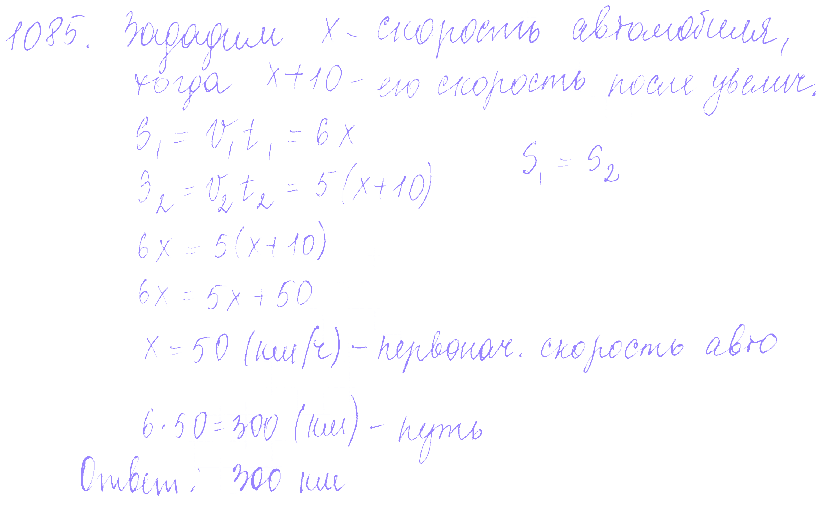 1085. Зададим x - скорость автомобиля,
тогда x+10 - его скорость после увелич.
S₁ = V₁t₁ = 6x
S₁ = S₂
S₂ = V₂t₂ = 5(x+10)
6x = 5(x+10)
6x = 5x+50
x = 50 (км/ч) - первонач. скорость авто
6·50=300 (км) - путь
Ответ: 300 км